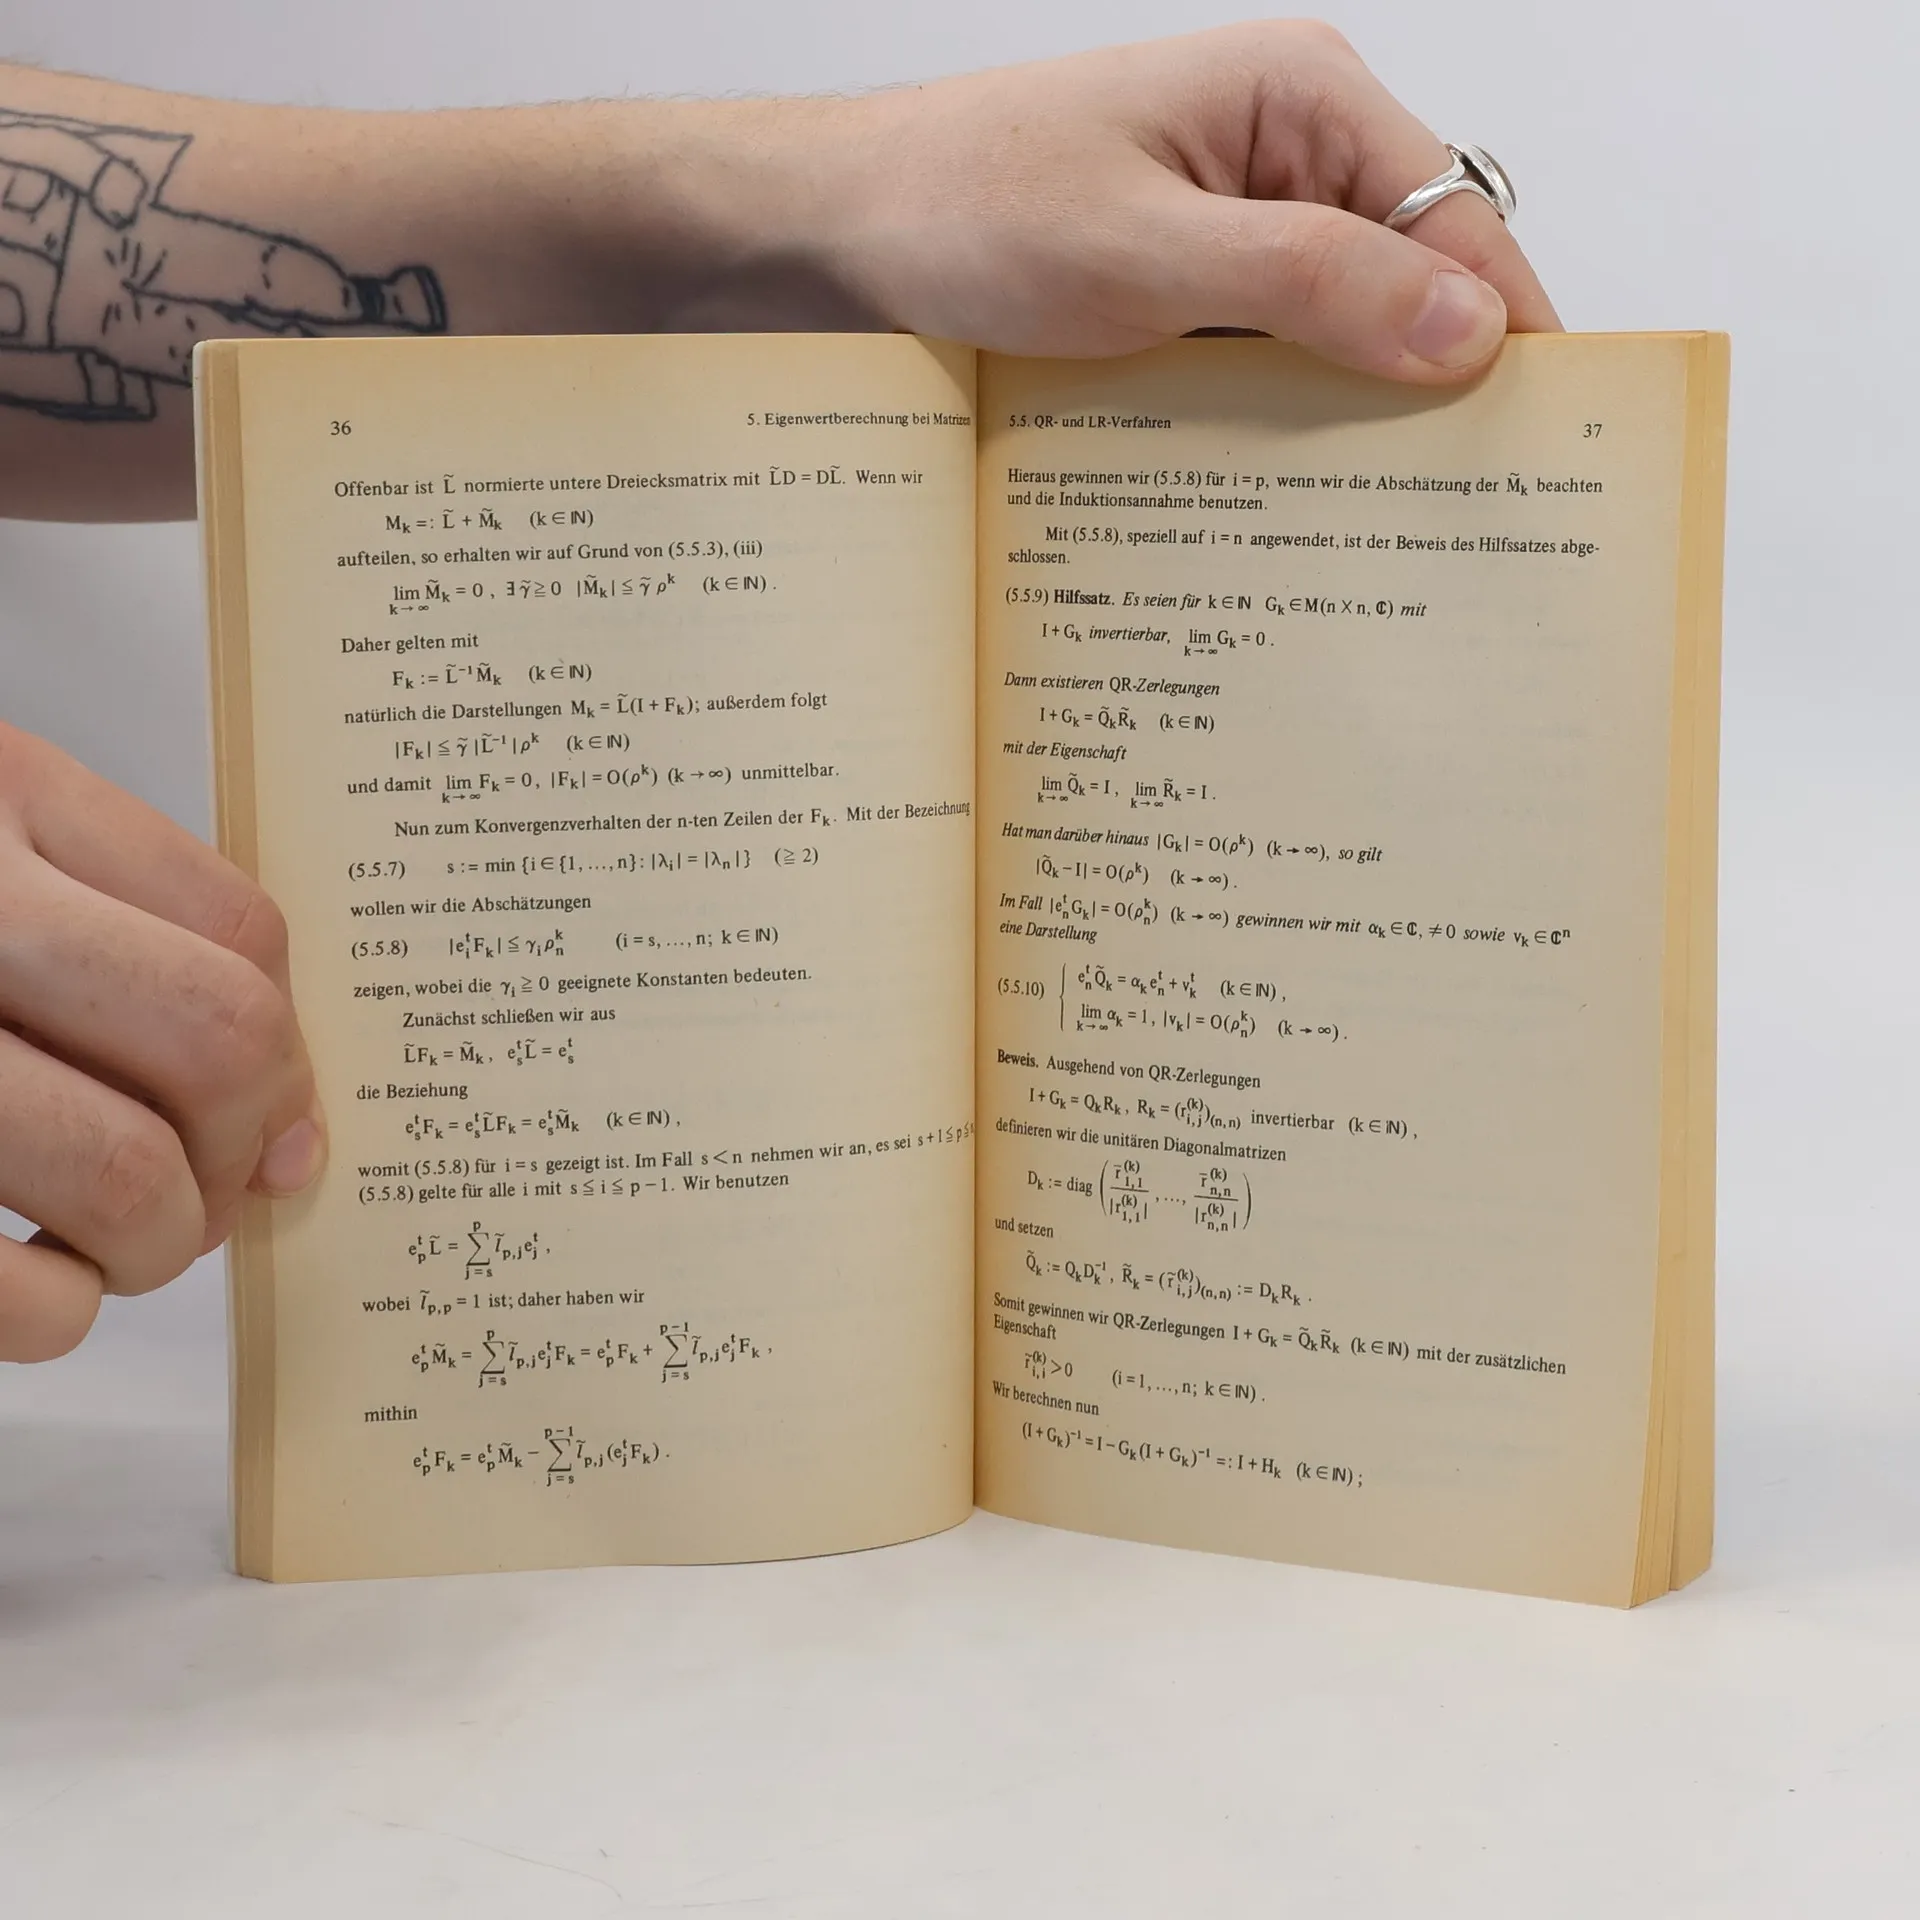 36
5. Eigenwertberechnung bei Matrizen
Offenbar ist L̃ normierte untere Dreiecksmatrix mit L̃D = DL̃. Wenn wir
M_k =: L̃ + M̃_k (k ∈ ℕ)
aufteilen, so erhalten wir auf Grund von (5.5.3), (iii)
lim_{k→∞} M̃_k = 0, ∃ γ̃ ≧ 0 |M̃_k| ≦ γ̃ ρ^k (k ∈ ℕ).
Daher gelten mit
F_k := L̃^{-1} M̃_k (k ∈ ℕ)
natürlich die Darstellungen M_k = L̃(I + F_k); außerdem folgt
|F_k| ≦ γ̃ |L̃^{-1}| ρ^k (k ∈ ℕ)
und damit lim_{k→∞} F_k = 0, |F_k| = O(ρ^k) (k → ∞) unmittelbar.
Nun zum Konvergenzverhalten der n-ten Zeilen der F_k. Mit der Bezeichnung
(5.5.7) s := min {i ∈ {1, ..., n}: |λ_i| = |λ_n|} (≧ 2)
wollen wir die Abschätzungen
(5.5.8) |e_i^t F_k| ≦ γ_i ρ_n^k (i = s, ..., n; k ∈ ℕ)
zeigen, wobei die γ_i ≧ 0 geeignete Konstanten bedeuten.
Zunächst schließen wir aus
L̃F_k = M̃_k, e_s^t L̃ = e_s^t
die Beziehung
e_s^t F_k = e_s^t L̃F_k = e_s^t M̃_k (k ∈ ℕ),
womit (5.5.8) für i = s gezeigt ist. Im Fall s < n nehmen wir an, es sei s + 1 ≦ p ≦
(5.5.8) gelte für alle i mit s ≦ i ≦ p − 1. Wir benutzen
e_p^t L̃ = ∑_{j=s}^{p} l̃_{p,j} e_j^t,
wobei l̃_{p,p} = 1 ist; daher haben wir
e_p^t M̃_k = ∑_{j=s}^{p} l̃_{p,j} e_j^t F_k = e_p^t F_k + ∑_{j=s}^{p−1} l̃_{p,j} e_j^t F_k,
mithin
e_p^t F_k = e_p^t M̃_k − ∑_{j=s}^{p−1} l̃_{p,j} (e_j^t F_k).
5.5. QR- und LR-Verfahren
37
Hieraus gewinnen wir (5.5.8) für i = p, wenn wir die Abschätzung der M̃_k beachten
und die Induktionsannahme benutzen.
Mit (5.5.8), speziell auf i = n angewendet, ist der Beweis des Hilfssatzes abge-
schlossen.
(5.5.9) Hilfssatz. Es seien für k ∈ ℕ G_k ∈ M(n × n, ℂ) mit
I + G_k invertierbar, lim_{k→∞} G_k = 0.
Dann existieren QR-Zerlegungen
I + G_k = Q̃_k R̃_k (k ∈ ℕ)
mit der Eigenschaft
lim_{k→∞} Q̃_k = I, lim_{k→∞} R̃_k = I.
Hat man darüber hinaus |G_k| = O(ρ^k) (k → ∞), so gilt
|Q̃_k − I| = O(ρ^k) (k → ∞).
Im Fall |e_n^t G_k| = O(ρ_n^k) (k → ∞) gewinnen wir mit α_k ∈ ℂ, ≠ 0 sowie v_k ∈ ℂ^n
eine Darstellung
(5.5.10) { e_n^t Q̃_k = α_k e_n^t + v_k^t (k ∈ ℕ),
lim_{k→∞} α_k = 1, |v_k| = O(ρ_n^k) (k → ∞).
Beweis. Ausgehend von QR-Zerlegungen
I + G_k = Q_k R_k, R_k = (r_{i,j}^{(k)})_{(n,n)} invertierbar (k ∈ ℕ),
definieren wir die unitären Diagonalmatrizen
D_k := diag ( r̄_{1,1}^{(k)} / |r_{1,1}^{(k)}| , ..., r̄_{n,n}^{(k)} / |r_{n,n}^{(k)}| )
und setzen
Q̃_k := Q_k D_k^{-1}, R̃_k = (r̃_{i,j}^{(k)})_{(n,n)} := D_k R_k.
Somit gewinnen wir QR-Zerlegungen I + G_k = Q̃_k R̃_k (k ∈ ℕ) mit der zusätzlichen
Eigenschaft
r̃_{i,i}^{(k)} > 0 (i = 1, ..., n; k ∈ ℕ).
Wir berechnen nun
(I + G_k)^{-1} = I − G_k (I + G_k)^{-1} =: I + H_k (k ∈ ℕ);